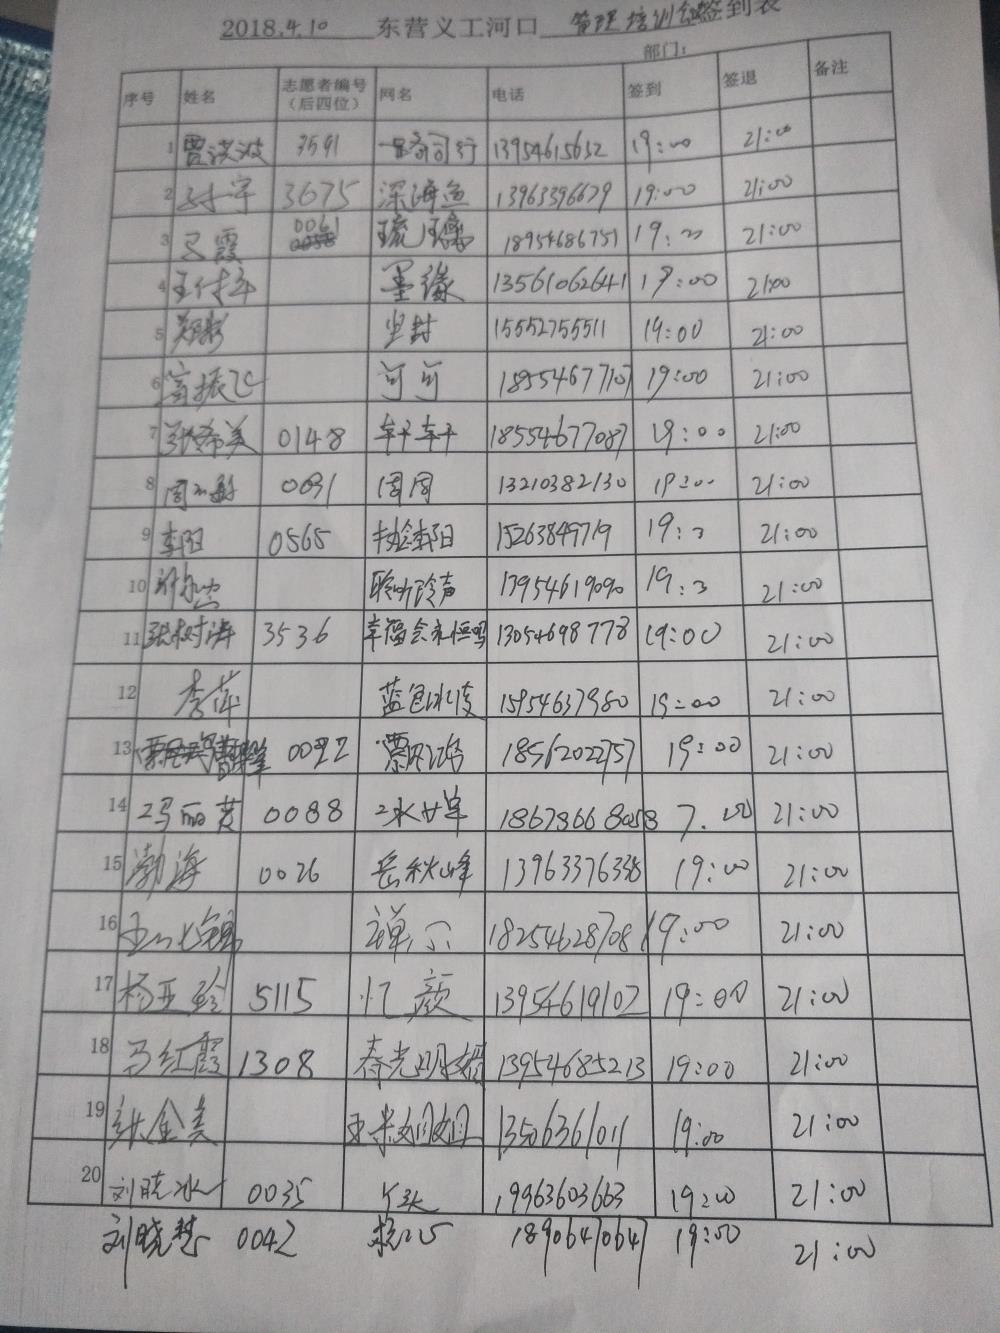 2018.4.10 东营义工河口 管理培训组签到表
部门:
序号 姓名 志愿者编号（后四位） 网名 电话 签到 签退 备注
1 3591 13954615632 19:00 21:00
2 3675 深海鱼 13963396679 19:00 21:00
3 马霞 0061 18954686751 19:00 21:00
4 墨缘 13561062641 19:00 21:00
5 尘封 15552755511 19:00 21:00
6 可可 19:00 21:00
7 张希美 0148 18554677087 19:00 21:00
8 0091 周周 13210382130 19:00 21:00
9 李阳 0565 15263849719 21:00
10 聆听玲声 13954619090 21:00
11 张树涛 3536 13054698778 19:00 21:00
12 李萍 蓝色冰凌 15954637980 19:00 21:00
13 0092 18562022757 19:00 21:00
14 冯丽英 0088 7.00 21:00
15 渤海 0026 岳秋峰 13963376338 19:00 21:00
16 18254628708 19:00 21:00
17 杨亚玲 5115 忆颜 13954619102 19:00 21:00
18 马红霞 1308 春光明媚 13954685213 19:00 21:00
19 张金美 13506361011 19:00 21:00
20 刘晓冰 0035 丫头 19963603663 19:00 21:00
刘晓慧 0042 18906470647 19:00 21:00